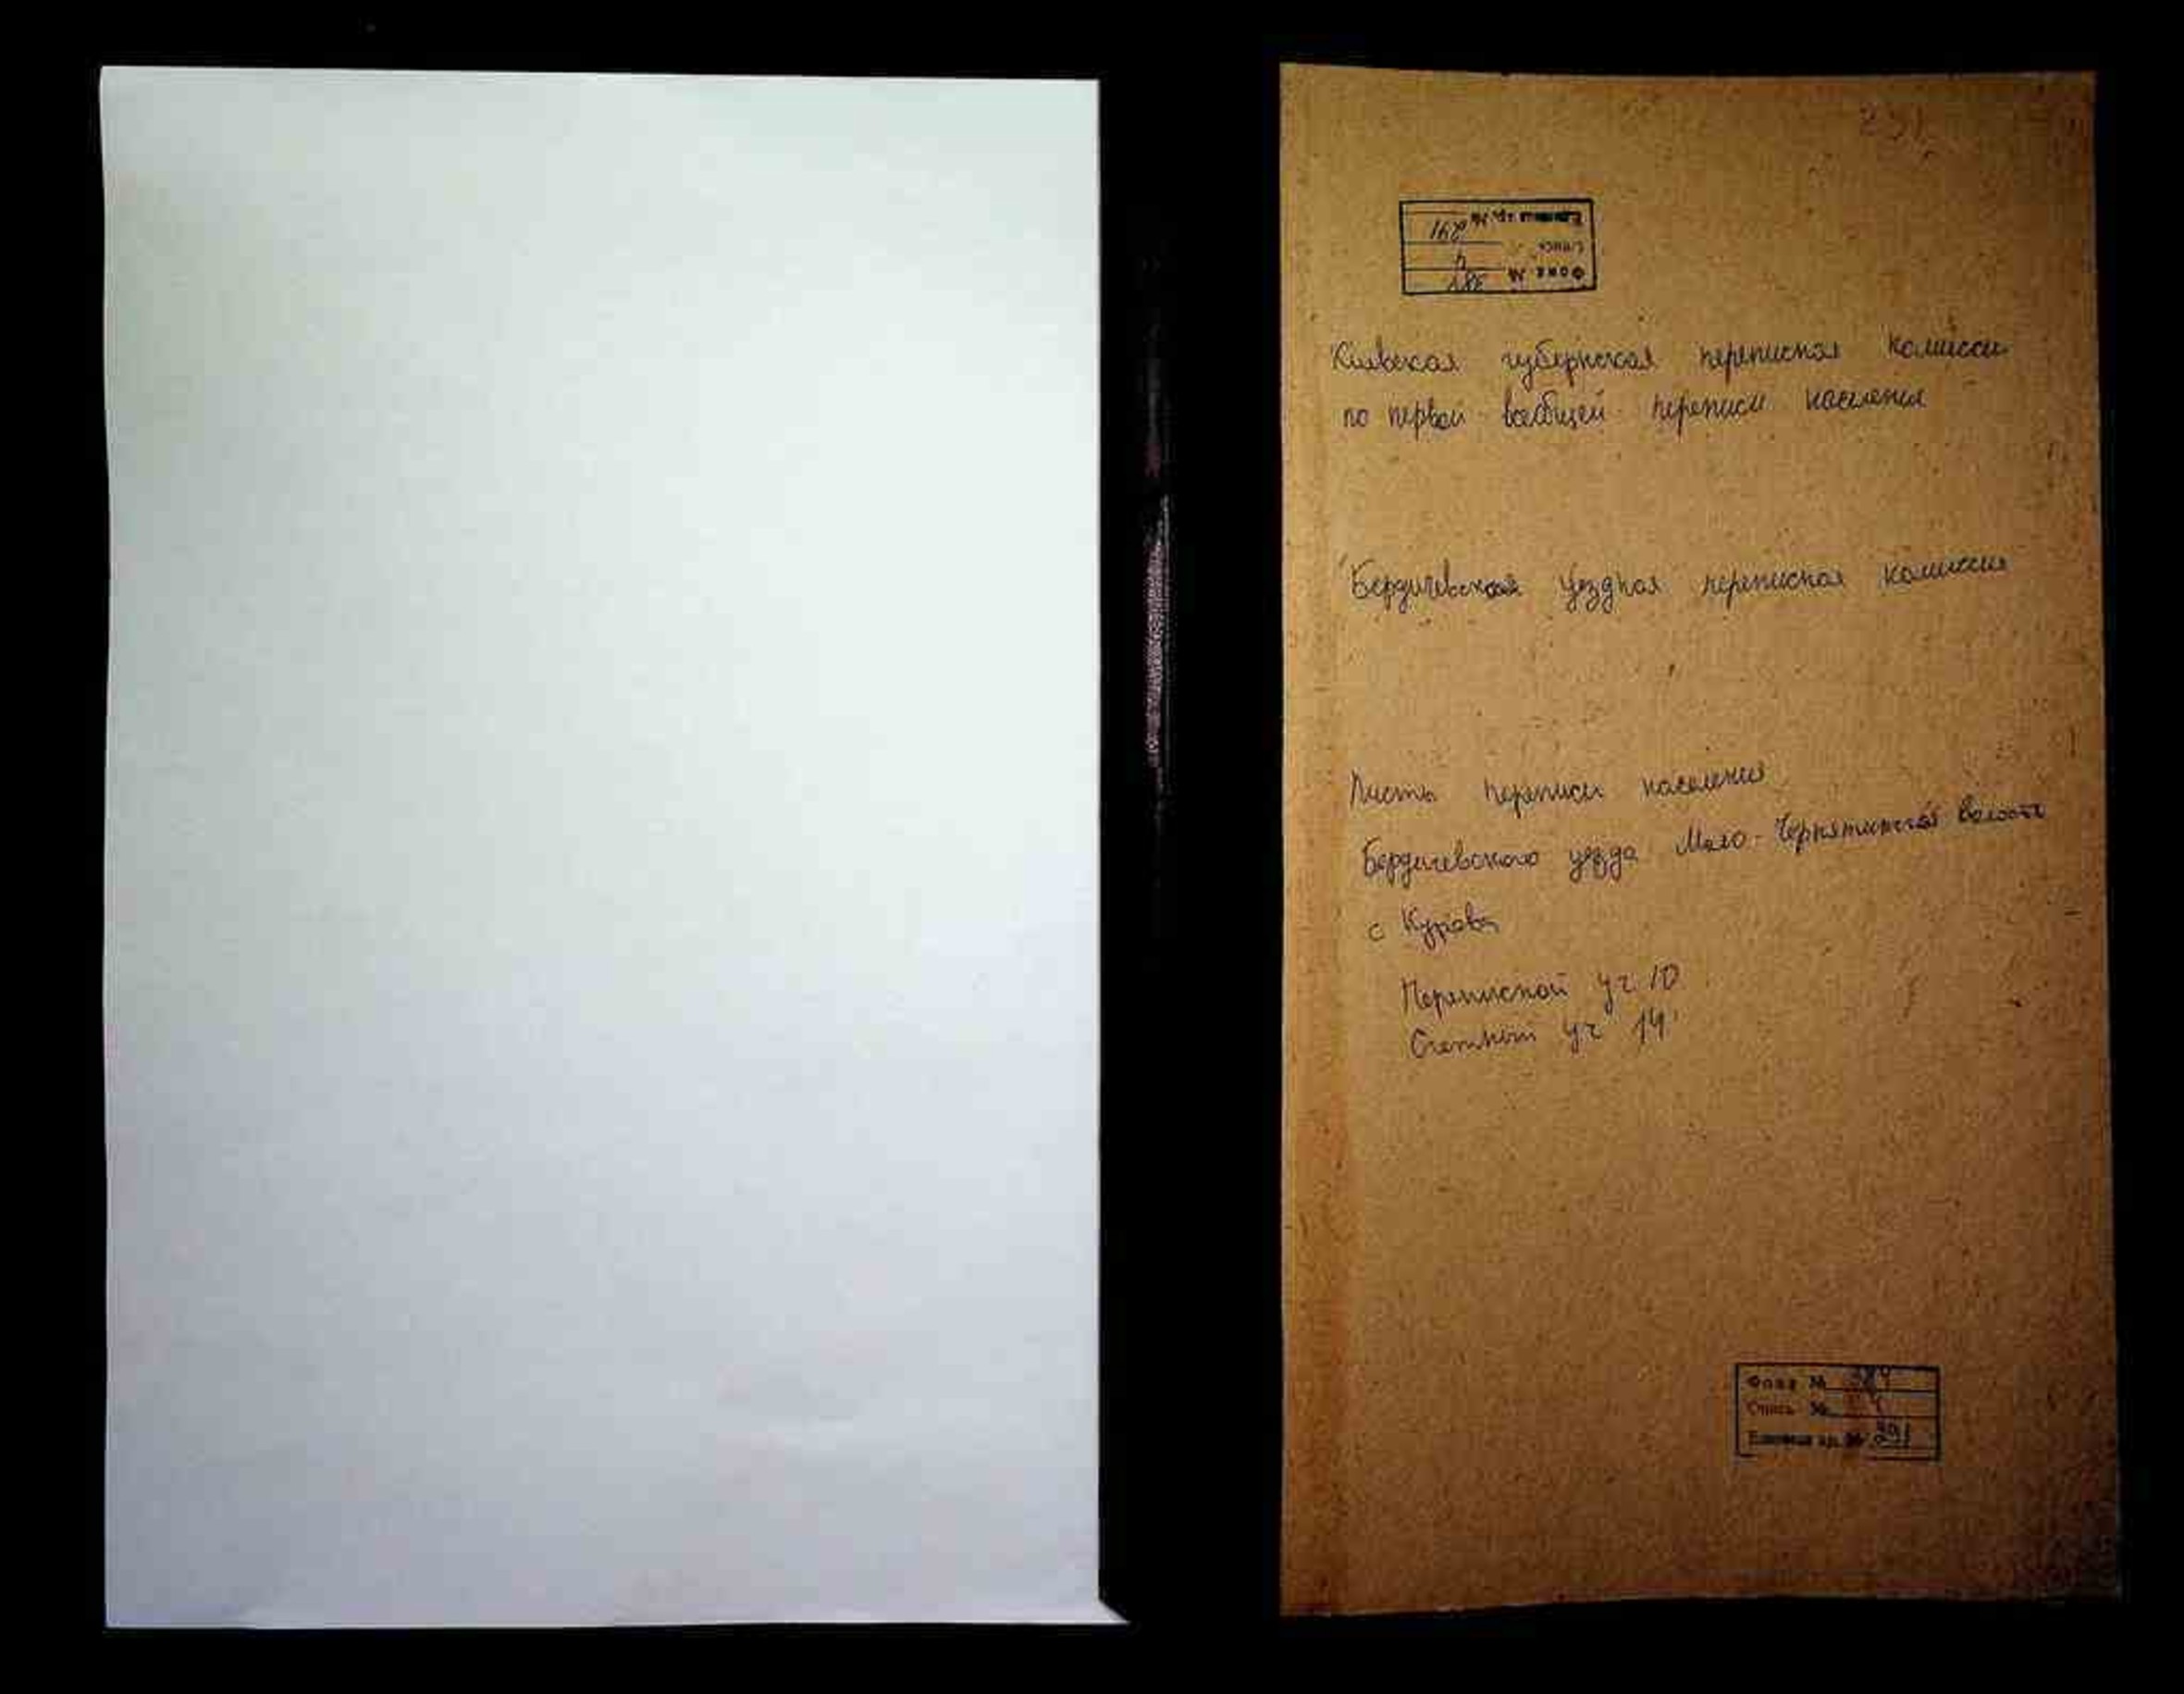 291
Единица хр. № 291
Опись 4
Фонд № 384
Киевская губернская переписная комиссия
по первой всеобщей переписи населения
Бердичевская уездная переписная комиссия
Листы переписи населения
Бердичевского уезда Мало-Чернятинская волость
с Курова
Переписной уч 10
Счетный уч 14
Фонд № 384
Опись № 4
Единица хр. № 291